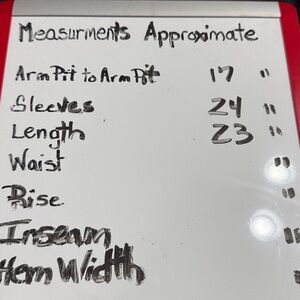 Measurments Approximate
Arm Pit to Arm Pit 17 "
Sleeves 24 "
Length 23 "
Waist "
Rise "
Inseam "
Hem Width "